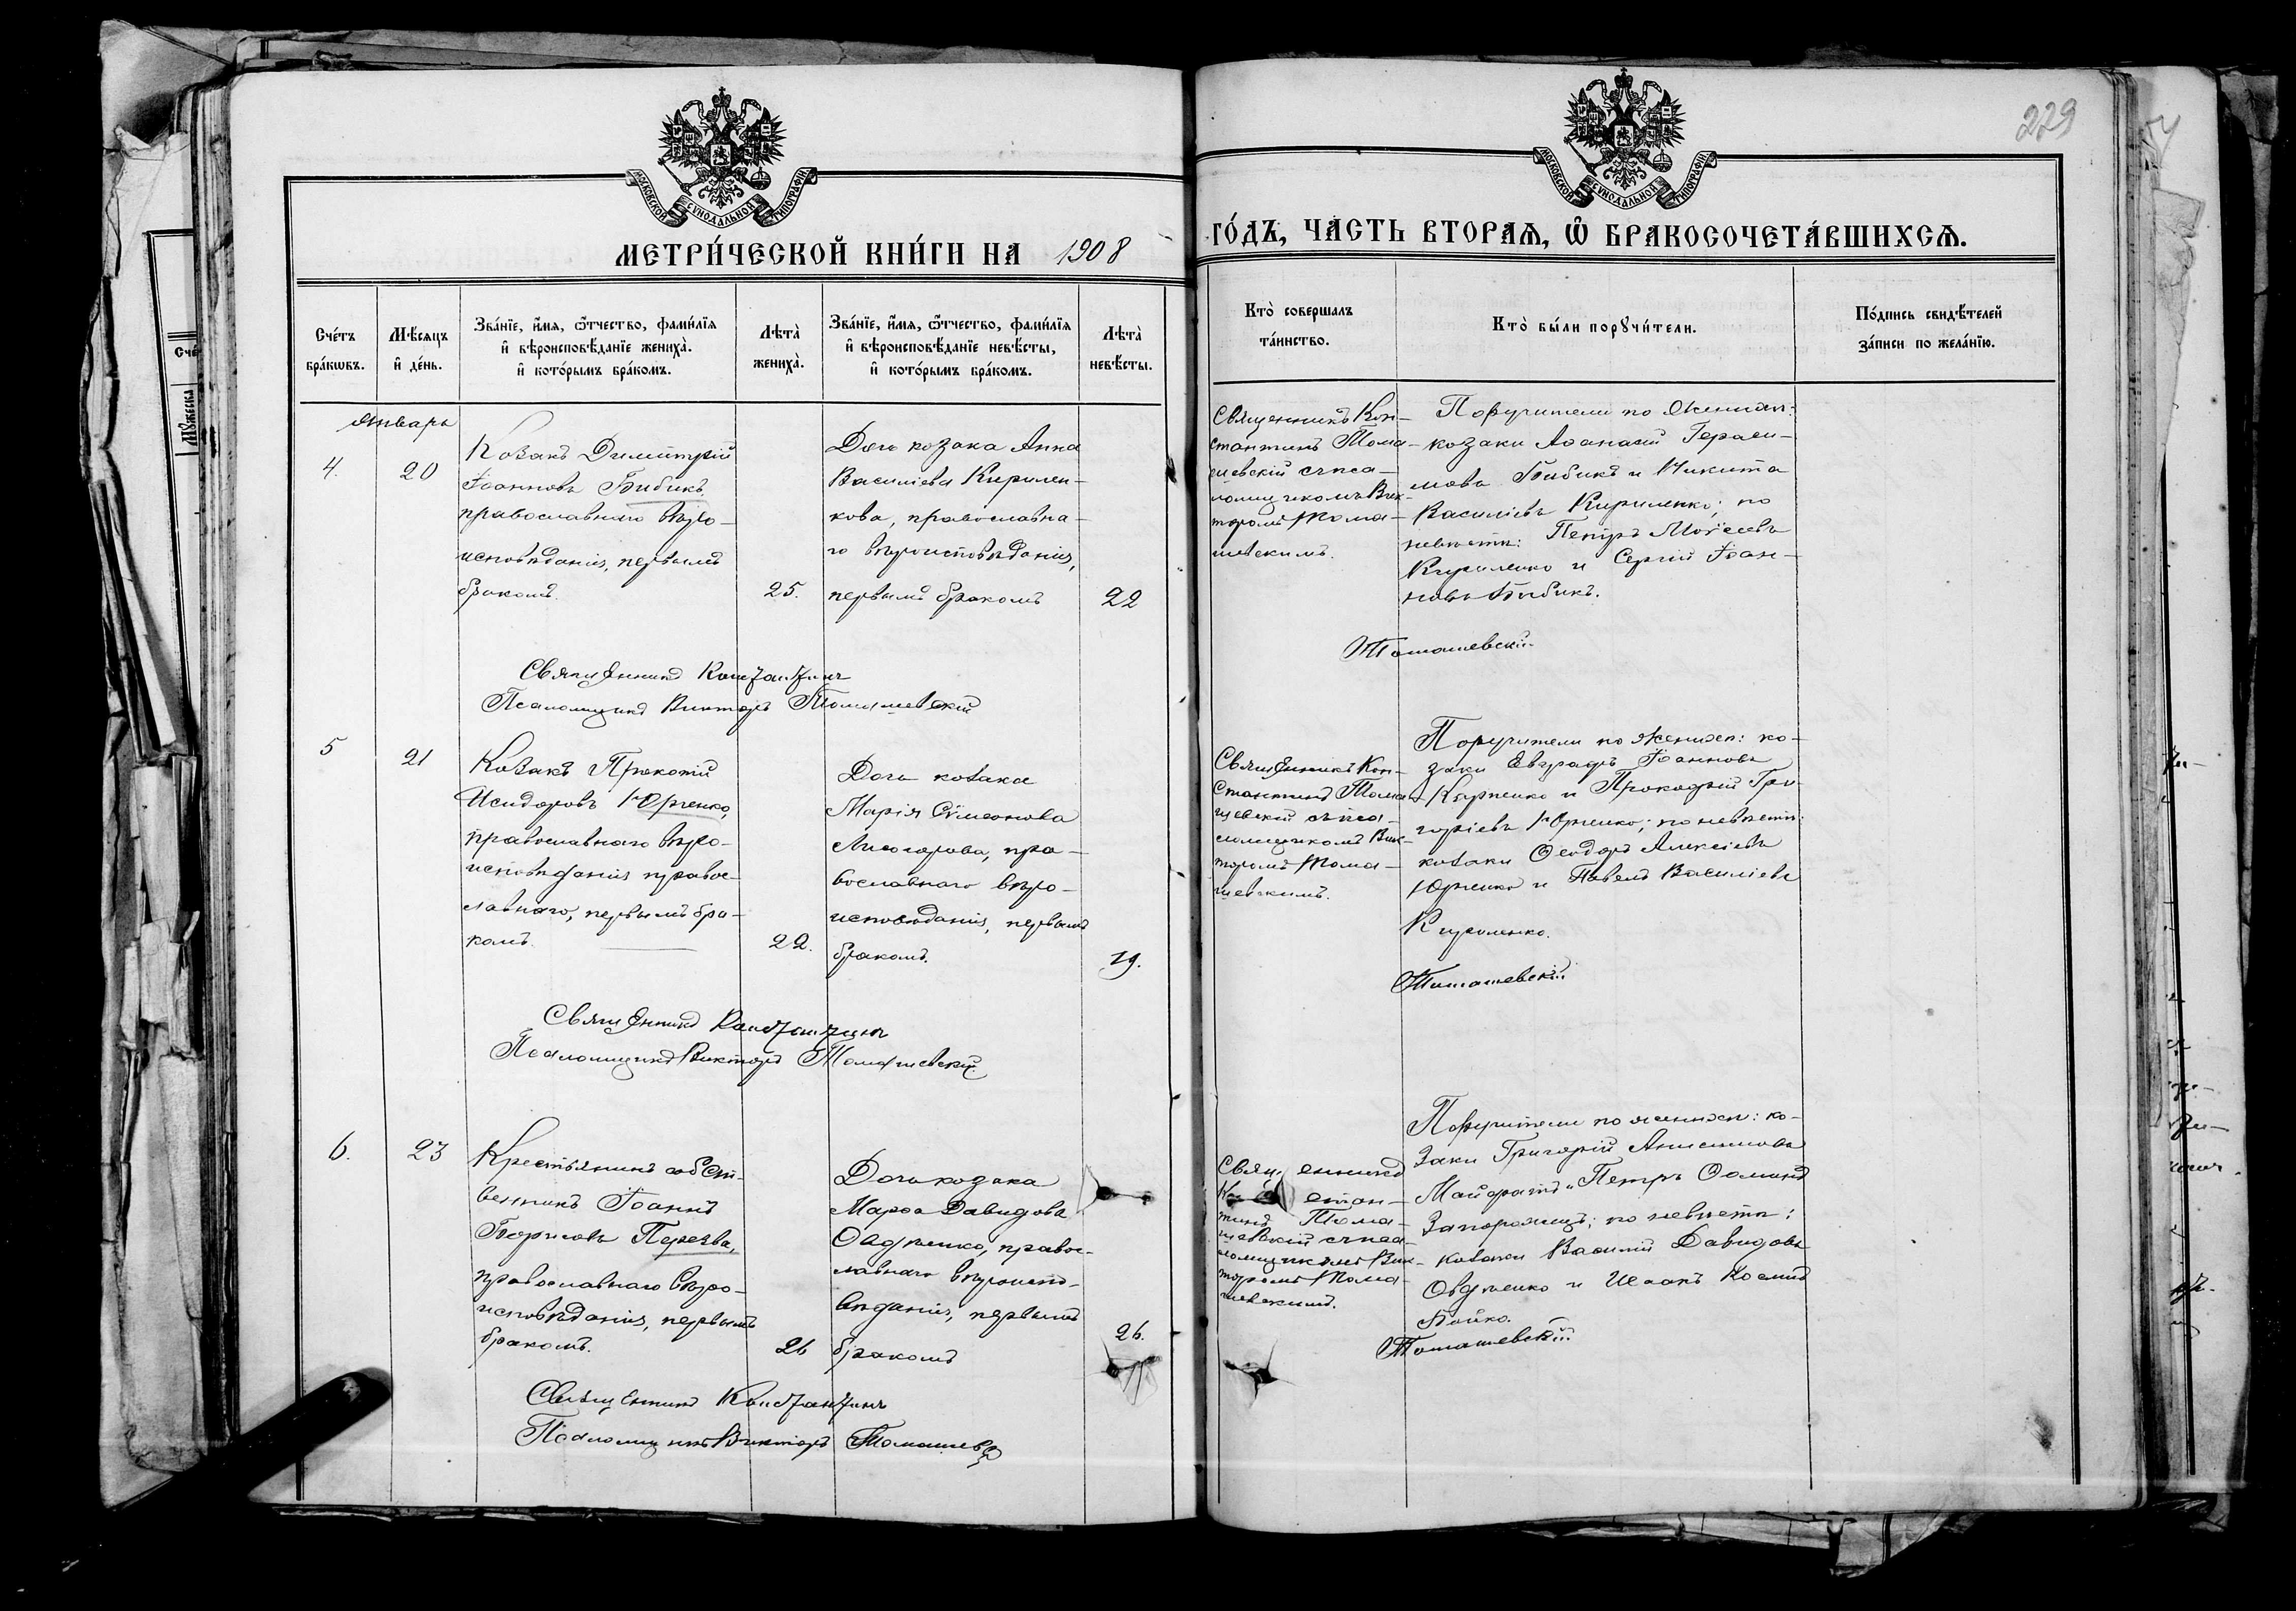 229
МОСКОВСКОЙ СУНОДАЛЬНОЙ ТИПОГРАФІИ
МОСКОВСКОЙ СУНОДАЛЬНОЙ ТИПОГРАФІИ
МЕТРИ́ЧЕСКОЙ КНИ́ГИ НА 1908
ГО́ДЪ, ЧАСТЬ ВТОРАѦ, Ѿ БРАКОСОЧЕТА́ВШИХСѦ.
Сче́тъ бра́кѡвъ.
Мѣ́сяцъ и҆ де́нь.
Зва́нїе, и҆́мя, ѻ҆́тчество, фами́лїя
и҆ вѣроисповѣ́данїе жениха̀.
и҆ кото́рымъ бра́комъ.
Лѣта̀ жениха̀.
Зва́нїе, и҆́мя, ѻ҆́тчество, фами́лїя
и҆ вѣроисповѣ́данїе невѣ́сты,
и҆ кото́рымъ бра́комъ.
Лѣта̀ невѣ́сты.
Кто̀ совершалъ
та́инство.
Кто̀ бы́ли порꙋчи́тели.
По́дпись свидѣ́телей
за́писи по жела́нїю.
Январь
4.
20
Козакъ Димитрій
Іоанновъ Бибикъ,
православнаго вѣро-
исповѣданія, первымъ
бракомъ.
25.
Дочь козака Анна
Василіева Кирилен-
кова, православна-
го вѣроисповѣданія,
первымъ бракомъ
22
Священникъ Кон-
стантинъ Тома-
шевскій съ пса-
ломщикомъ Вик-
торомъ Тома-
шевскимъ.
Поручители по женихѣ:
козаки Аѳанасій Гераси-
мовъ Бибикъ и Никита
Василіевъ Кириленко; по
невѣстѣ: Петръ Моѵсеевъ
Кириленко и Сергій Іоан-
новъ Бибикъ.
Томашевскій
Священникъ Константинъ
Псаломщикъ Викторъ Томашевскій
5
21
Козакъ Прокопій
Исидоровъ Юрченко,
православнаго вѣро-
исповѣданія правос-
лавнаго, первымъ бра-
комъ.
22.
Дочь козака
Марія Сѵмеонова
Лисогорова, пра-
вославнаго вѣро-
исповѣданія, первымъ
бракомъ.
19.
Священникъ Кон-
стантинъ Тома-
шевскій съ пса-
ломщикомъ Вик-
торомъ Тома-
шевскимъ.
Поручители по женихѣ: ко-
заки Евграфъ Іоанновъ
и Прокофій Гри-
горіевъ Юрченко; по невѣстѣ:
козаки Ѳеодоръ Алексіевъ
Юрченко и Павелъ Василіевъ
Кириленко.
Томашевскій
Священникъ Константинъ
Псаломщикъ Викторъ Томашевскій.
6.
23
Крестьянинъ собст-
венникъ Іоаннъ
Борисовъ Перезва,
православнаго вѣро-
исповѣданія, первымъ
бракомъ.
26
Дочь козака
Марѳа Давидова
Овдѣенко, правос-
лавнаго вѣроиспо-
вѣданія, первымъ
бракомъ
26.
Священникъ
Констан-
тинъ Тома-
шевскій съ пса-
ломщикомъ Вик-
торомъ Тома-
шевскимъ.
Поручители по женихѣ: ко-
заки Григорій Анисимовъ
и Петръ Ѳоминъ
Запорожецъ; по невѣстѣ:
козаки Василій Давидовъ
Овдѣенко и Исаакъ Косминъ
Бойко.
Томашевскій
Священникъ Константинъ
Псаломщикъ Викторъ Томашевскій